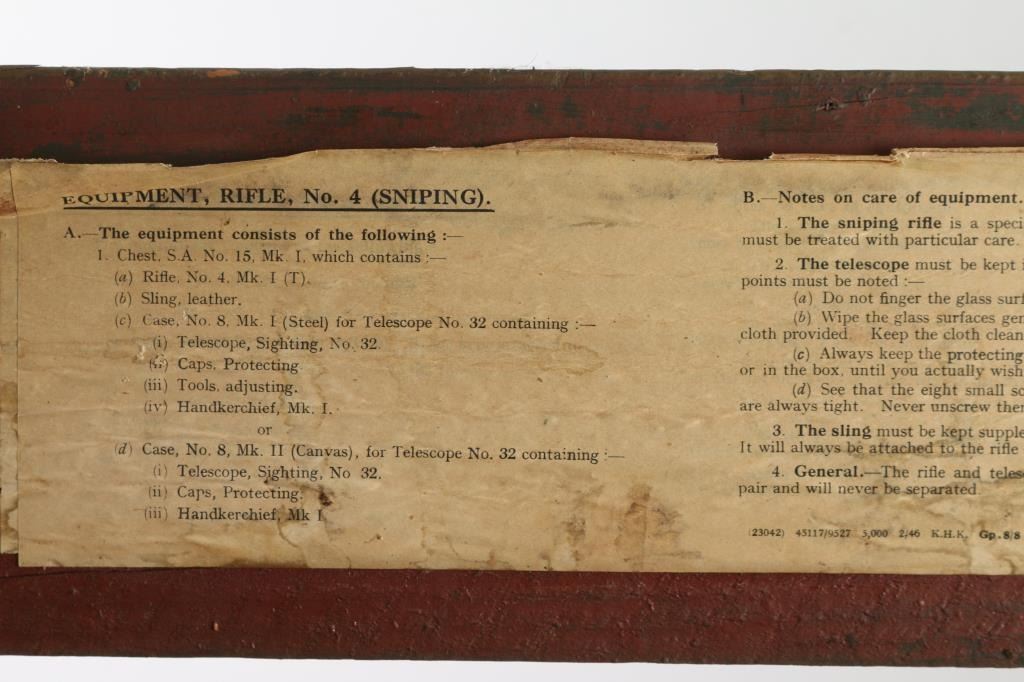 EQUIPMENT, RIFLE, No. 4 (SNIPING).
A.—The equipment consists of the following :—
1. Chest, S.A. No. 15, Mk. I, which contains :—
(a) Rifle, No. 4, Mk. I (T).
(b) Sling, leather.
(c) Case, No. 8, Mk. I (Steel) for Telescope No. 32 containing :—
(i) Telescope, Sighting, No. 32.
(ii) Caps, Protecting.
(iii) Tools, adjusting.
(iv) Handkerchief, Mk. I.
or
(d) Case, No. 8, Mk. II (Canvas), for Telescope No. 32 containing :—
(i) Telescope, Sighting, No 32.
(ii) Caps, Protecting.
(iii) Handkerchief, Mk I
B.—Notes on care of equipment.
1. The sniping rifle is a speci
must be treated with particular care.
2. The telescope must be kept
points must be noted :—
(a) Do not finger the glass surf
(b) Wipe the glass surfaces gen
cloth provided. Keep the cloth clean
(c) Always keep the protecting
or in the box, until you actually wish
(d) See that the eight small sc
are always tight. Never unscrew them
3. The sling must be kept supple
It will always be attached to the rifle
4. General.—The rifle and teles
pair and will never be separated.
(23042) 45117/9527 5,000 2/46 K.H.K. Gp. 8/8